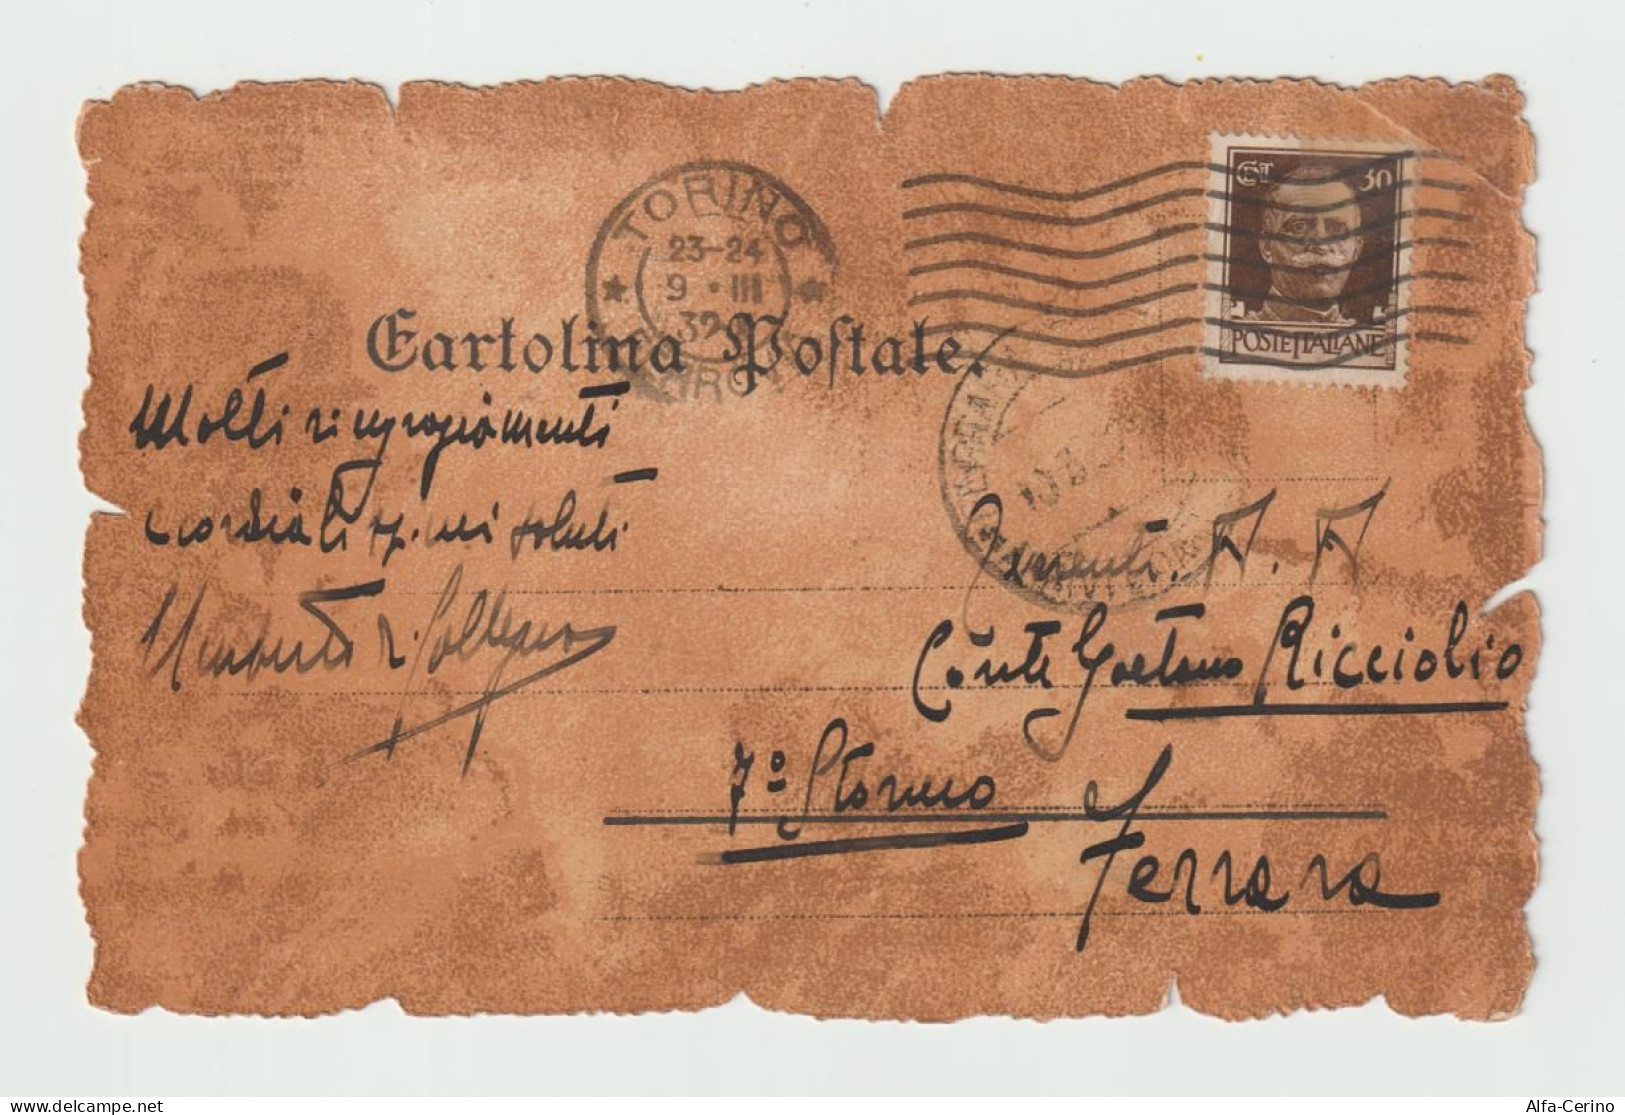 TORINO
23-24
9 · III
39
CENT 30
POSTE ITALIANE
Cartolina Postale.
FERRARA
Molti ringraziamenti
cordialissimi saluti
Umberto
Conte Gaetano Ricciolio
7º Stormo
Ferrara
delcampe.net
Alfa-Cerino